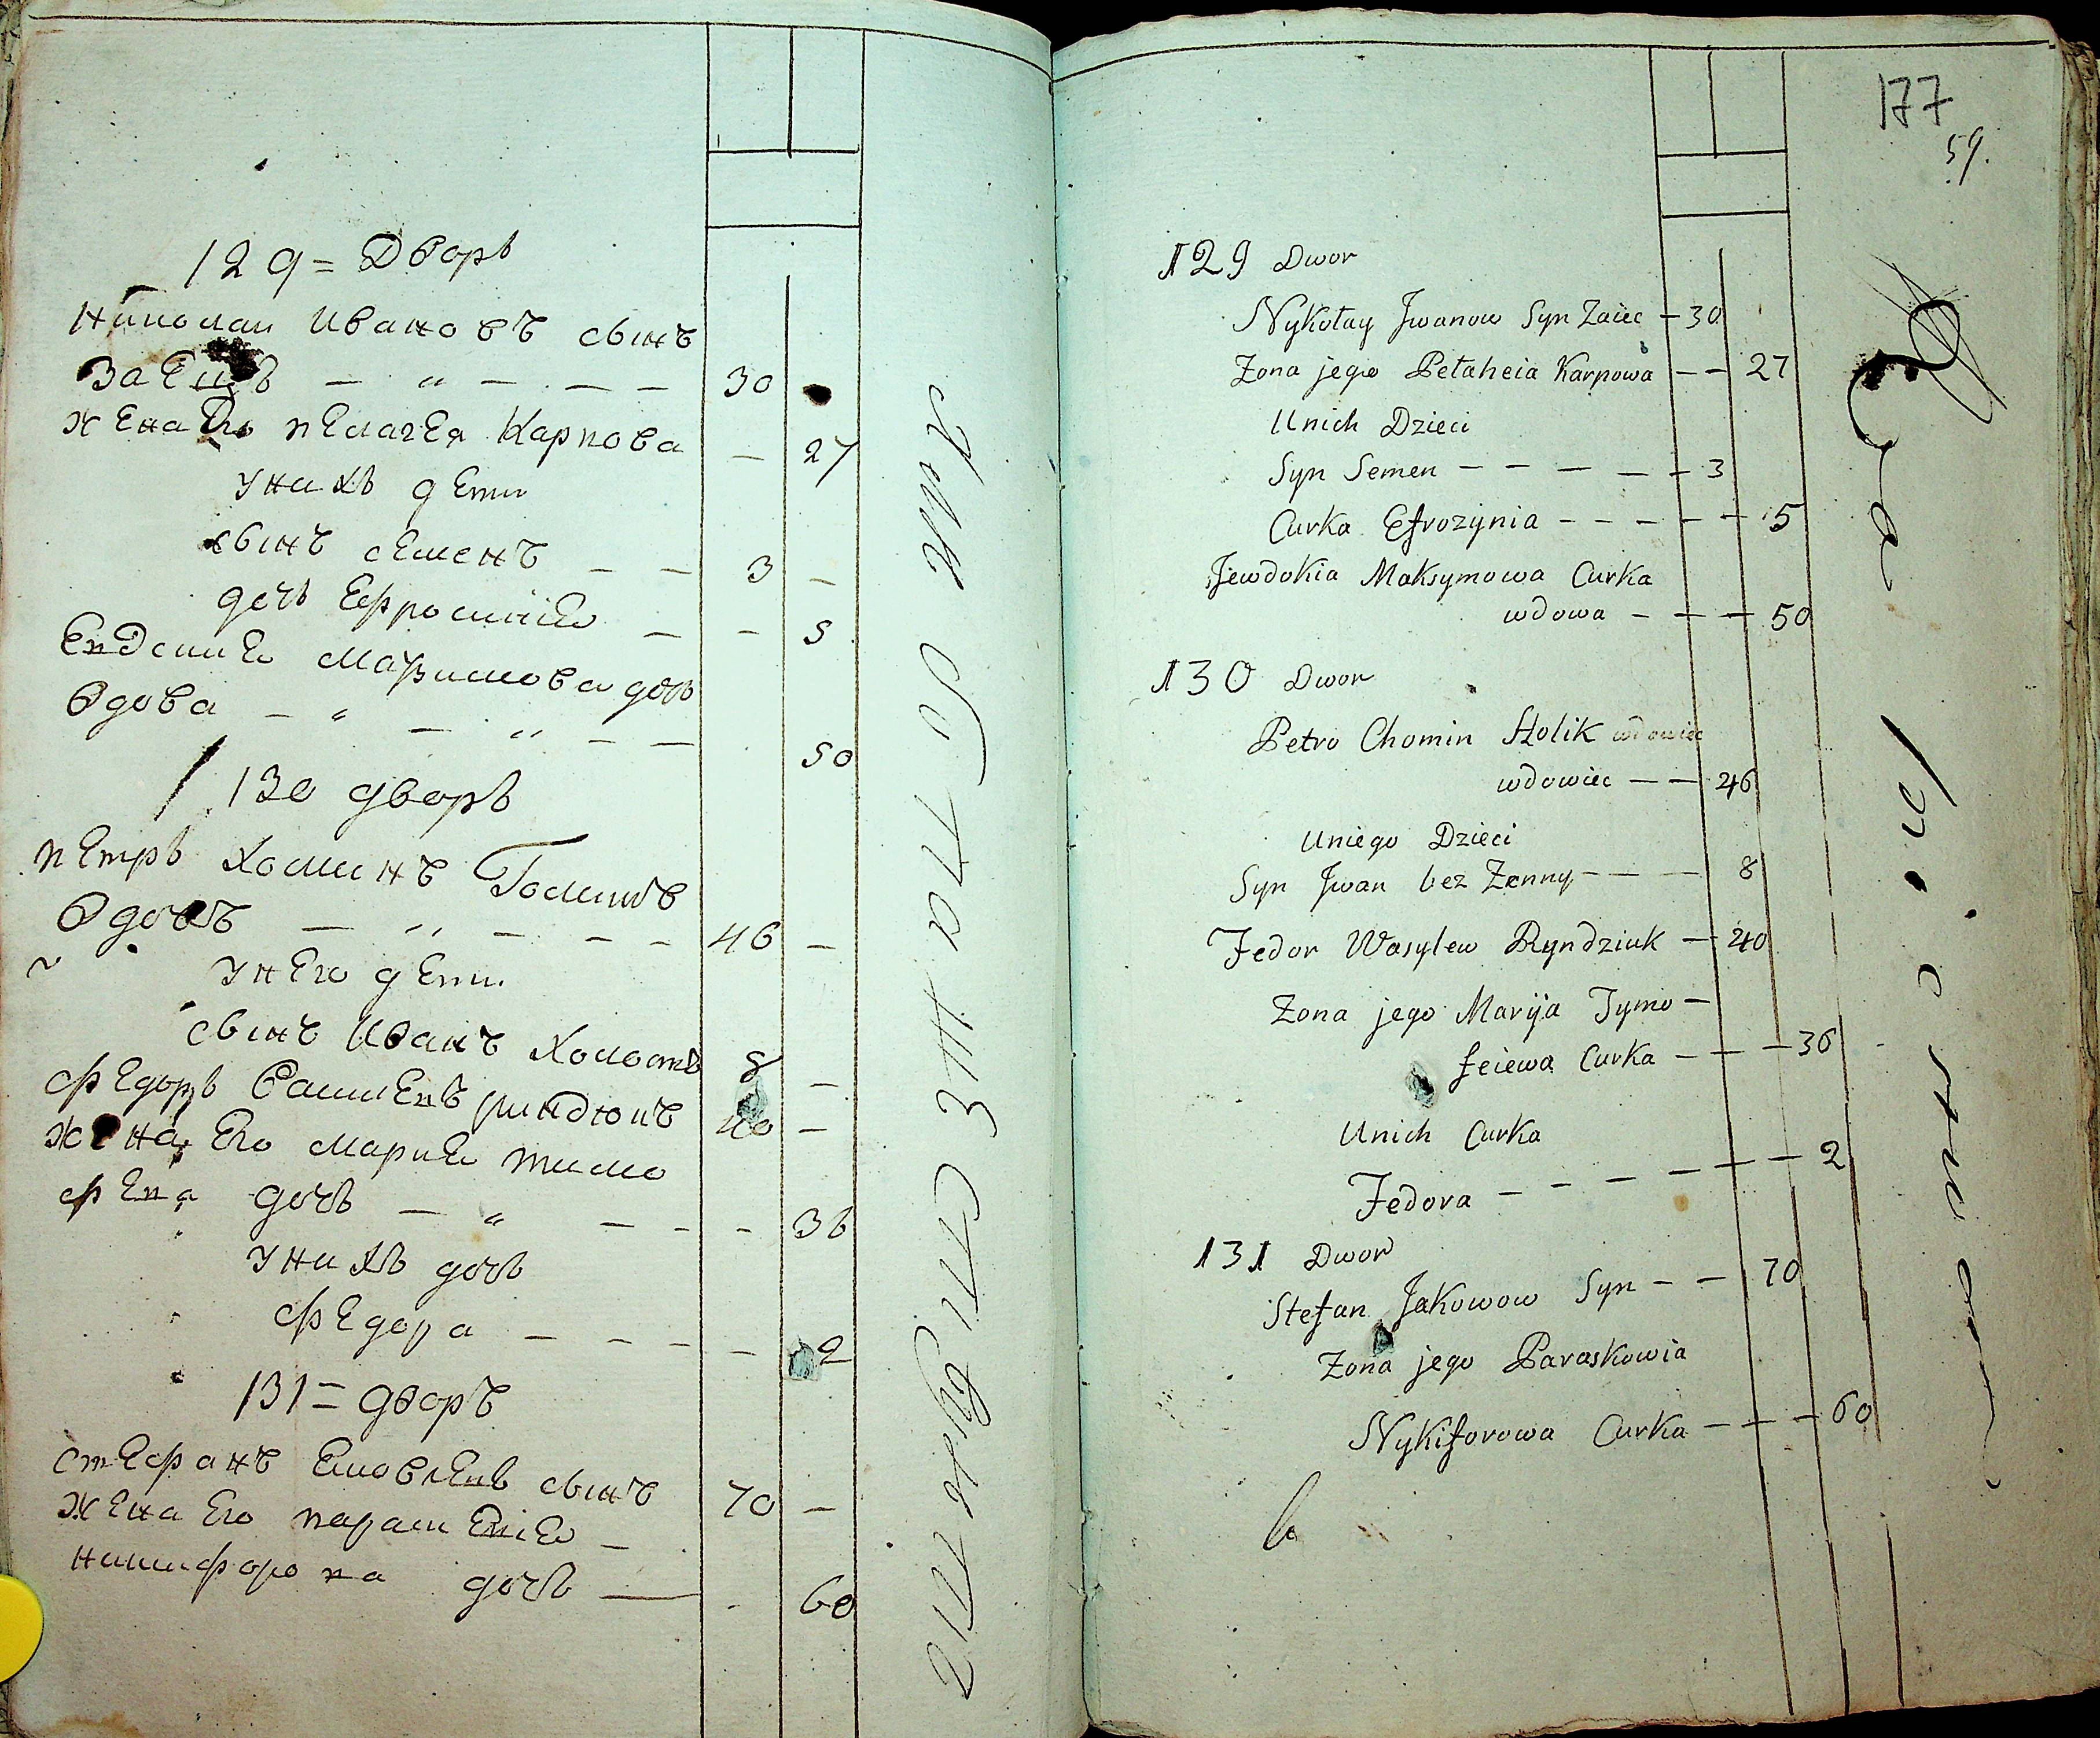 129 = Дворъ
Николаи Ивановъ сынъ
Заецъ — „ — — — 30
жена Его пЕлагЕя Карпова — 27
унихъ дЕти
сынъ сЕменъ — — 3 —
дочь Ефросинiя — — 5
Евдокия Максимова дочь
вдова — „ — „ — — 50
130 дворъ
пЕтръ Хоминъ Голикъ
вдовъ — „ — — — 46 —
унЕго дЕти
сынъ Иванъ холостъ 8 —
фЕдоръ ВасилЕвъ риндюкъ 40 —
жЕна Его мария тимо
фЕва дочь — „ — — — 36
унихъ дочь
фЕдора — — — — 2
131 = дворъ
стЕфанъ сынъ 70 —
жЕна Его —
никифорова дочь — - 60
177
59.
129 Dwor
Nykołay Jwanow Syn Zaiec — 30
Zona jego Pełaheia Karpowa — — 27
Unich Dzieci
Syn Semen — — — — — 3
Curka Efrozynia — — — — — 5
Jewdokia Maksymowa Curka
wdowa — — — 50
130 Dwor
Petro Chomin Holik wdowiec
wdowiec — — 46
Uniego Dzieci
Syn Jwan bez Zenny — — — 8
Fedor Wasylew Ryndziuk — 40
Zona jego Maryja Tymo —
feiewa Curka — — — 36
Unich Curka
Fedora — — — — — — 2
131 Dwor
Stefan Jakowow Syn — — 70
Zona jego Paraskowia
Nykiforowa Curka — — — 60